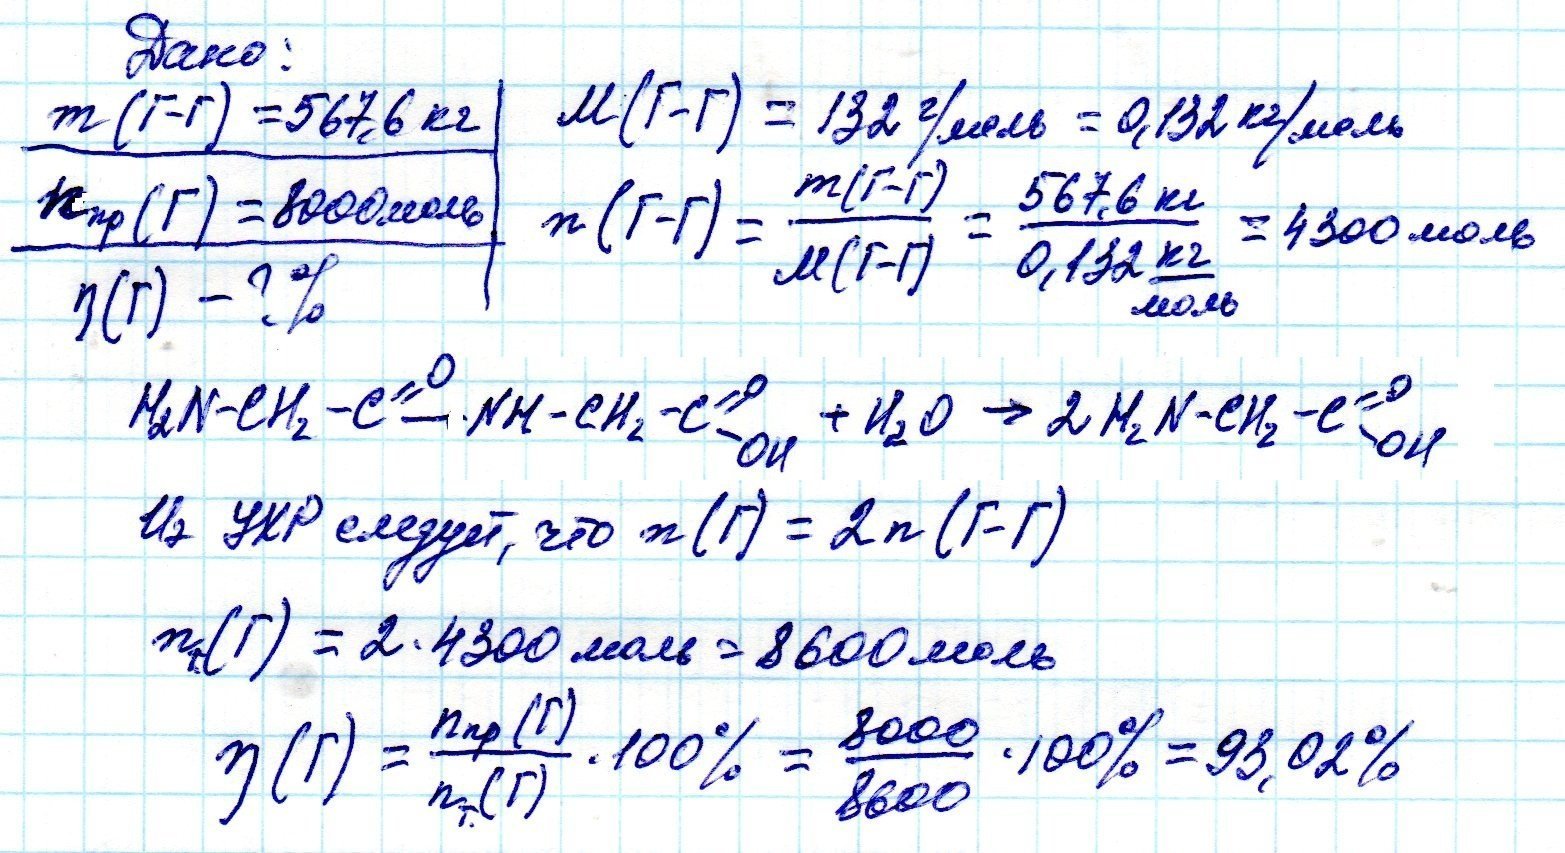 Дано:
m(Г-Г) = 567,6 кг
M(Г-Г) = 132 г/моль = 0,132 кг/моль
nпр(Г) = 8000 моль
n(Г-Г) = m(Г-Г)/M(Г-Г) = 567,6 кг/0,132 кг/моль = 4300 моль
η(Г) - ? %
H₂N-CH₂-C=O-NH-CH₂-C=O-OH + H₂O → 2H₂N-CH₂-C=O-OH
Из УХР следует, что n(Г) = 2n(Г-Г)
nт.(Г) = 2·4300 моль = 8600 моль
η(Г) = nпр(Г)/nт.(Г) ·100% = 8000/8600 ·100% = 93,02%